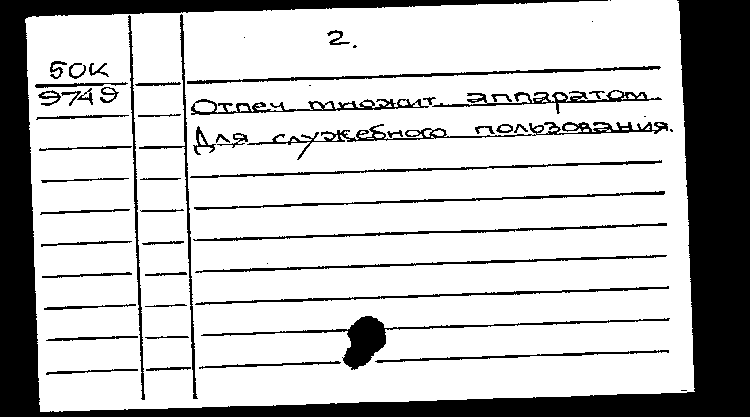 2.
50К
9749
Отпеч. множит. аппаратом.
Для служебного пользования.